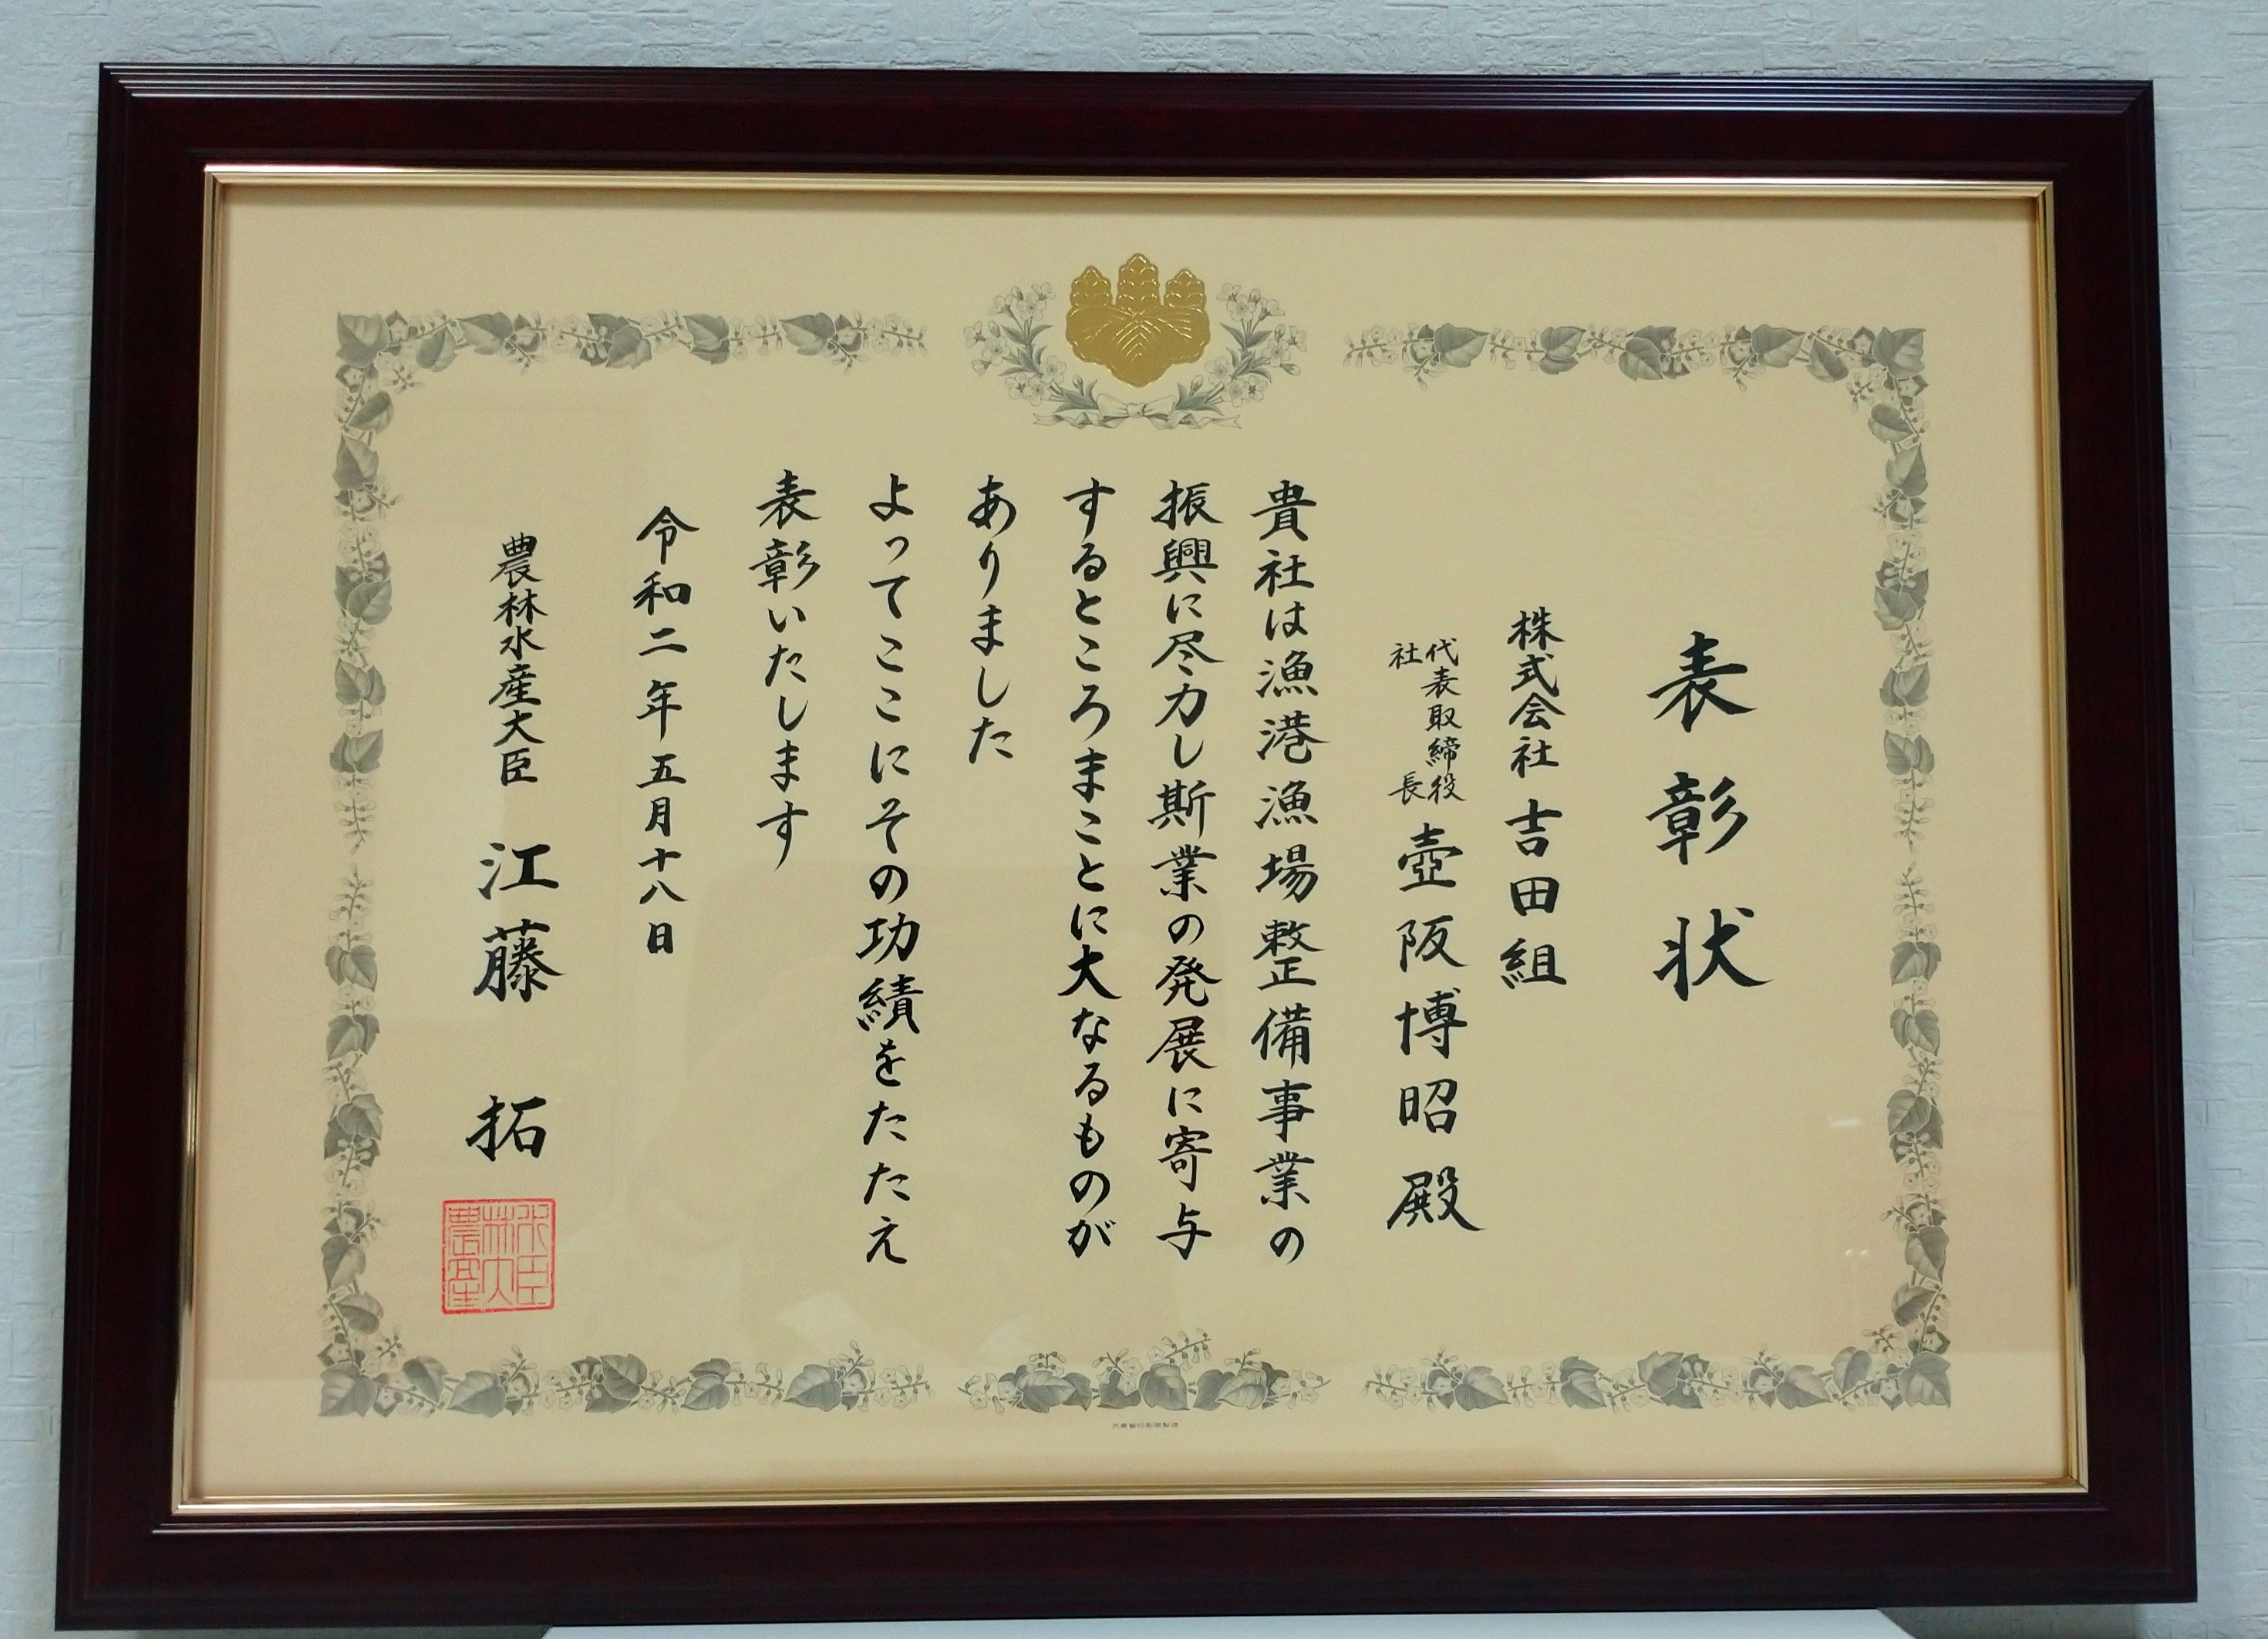 表彰状
株式会社吉田組
代表取締役
社長
壺阪博昭殿
貴社は漁港漁場整備事業の
振興に尽力し斯業の発展に寄与
するところまことに大なるものが
ありました
よってここにその功績をたたえ
表彰いたします
令和二年五月十八日
農林水産大臣 江藤 拓
農産林大水臣